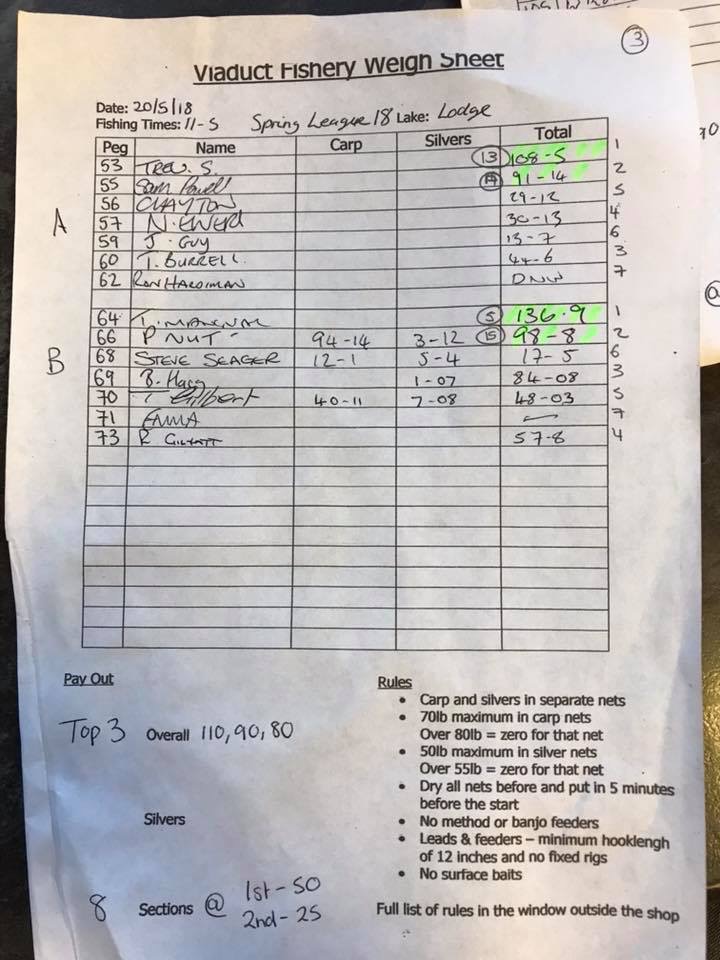 3
Viaduct Fishery Weigh Sheet
Date: 20/5/18
Fishing Times: 11-5 Spring League 18 Lake: Lodge
Peg Name Carp Silvers Total
53 TREV. S. 13 108-5 1
55 Sam Powell 91-14 2
56 CLAYTON 29-12 5
A
57 N. EWERS 30-13 4
59 J. GUY 13-7 6
60 T. BURRELL 44-6 3
62 RON HARDIMAN DNW 7
64 T. 5 136-9 1
66 P NUT 94-14 3-12 15 98-8 2
B
68 STEVE SEAGER 12-1 5-4 17-5 6
69 B. 1-07 84-08 3
70 T Gilbert 40-11 7-08 48-03 5
71 EMMA 7
73 R 57-8 4
Pay Out
Top 3 Overall 110, 90, 80
Silvers
8 Sections @ 1st-50
2nd-25
Rules
• Carp and silvers in separate nets
• 70lb maximum in carp nets
Over 80lb = zero for that net
• 50lb maximum in silver nets
Over 55lb = zero for that net
• Dry all nets before and put in 5 minutes
before the start
• No method or banjo feeders
• Leads & feeders – minimum hooklengh
of 12 inches and no fixed rigs
• No surface baits
Full list of rules in the window outside the shop